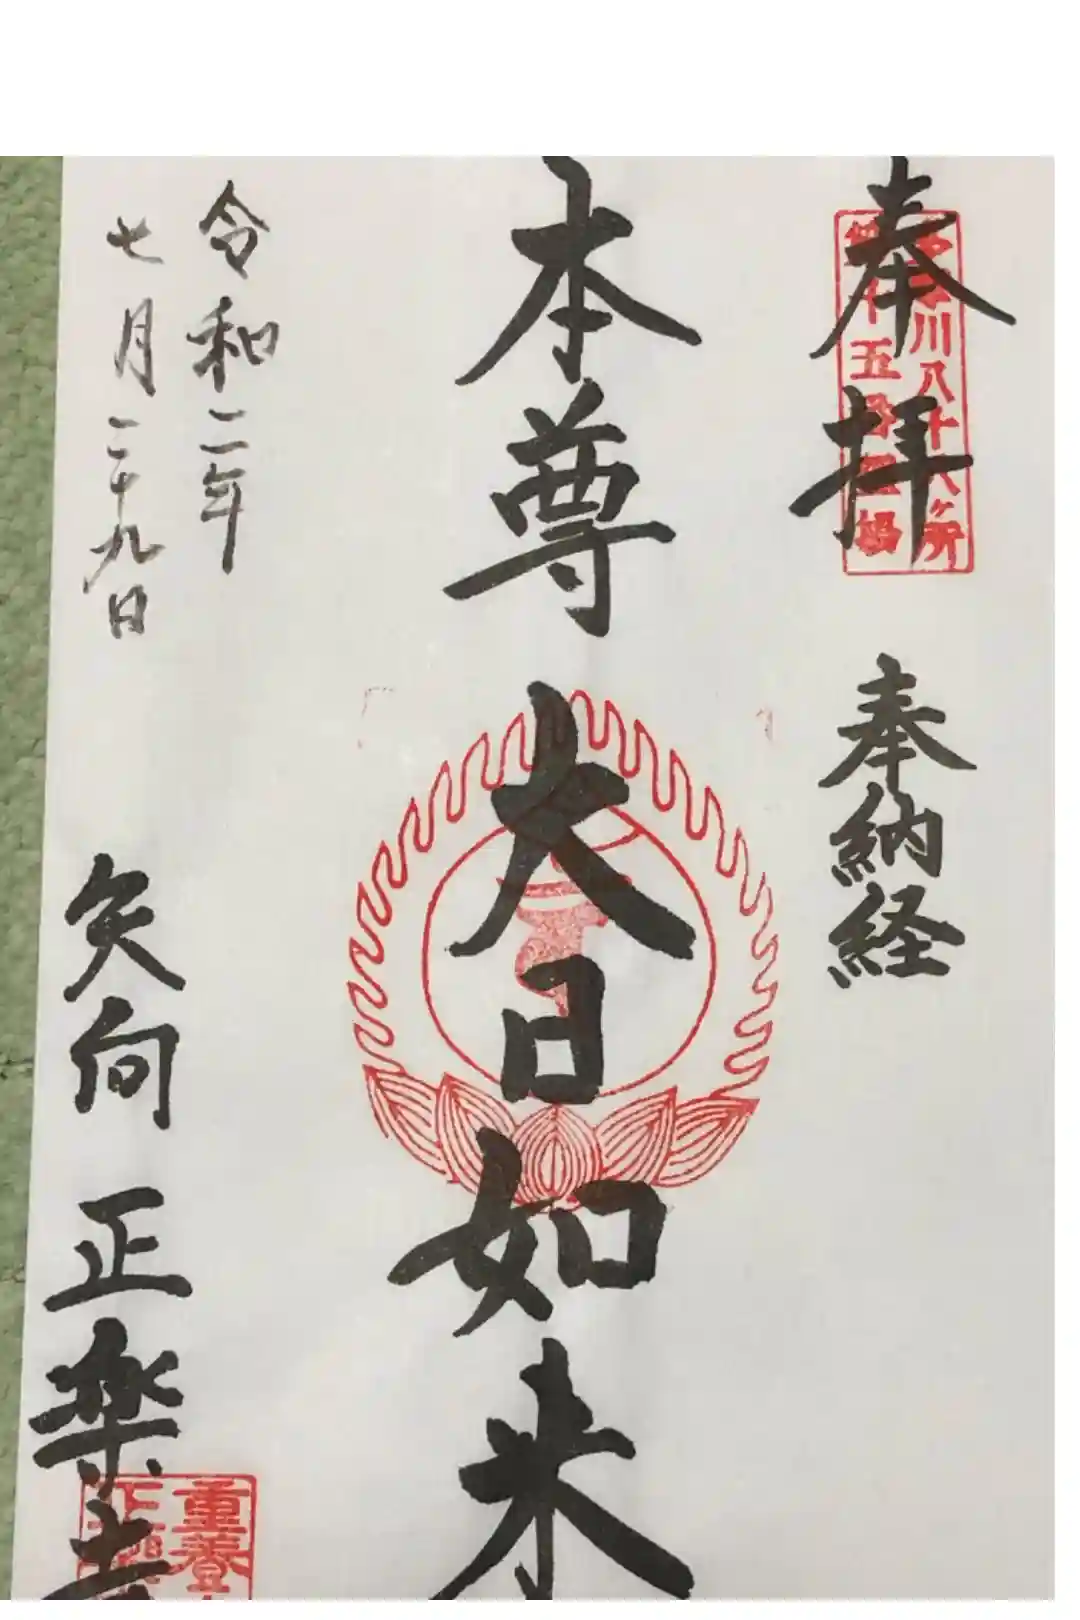 奉拝
川八十八ヶ所
十五番霊場
奉納経
本尊
大日如来
令和二年
七月二十九日
矢向
正楽寺
重養
正